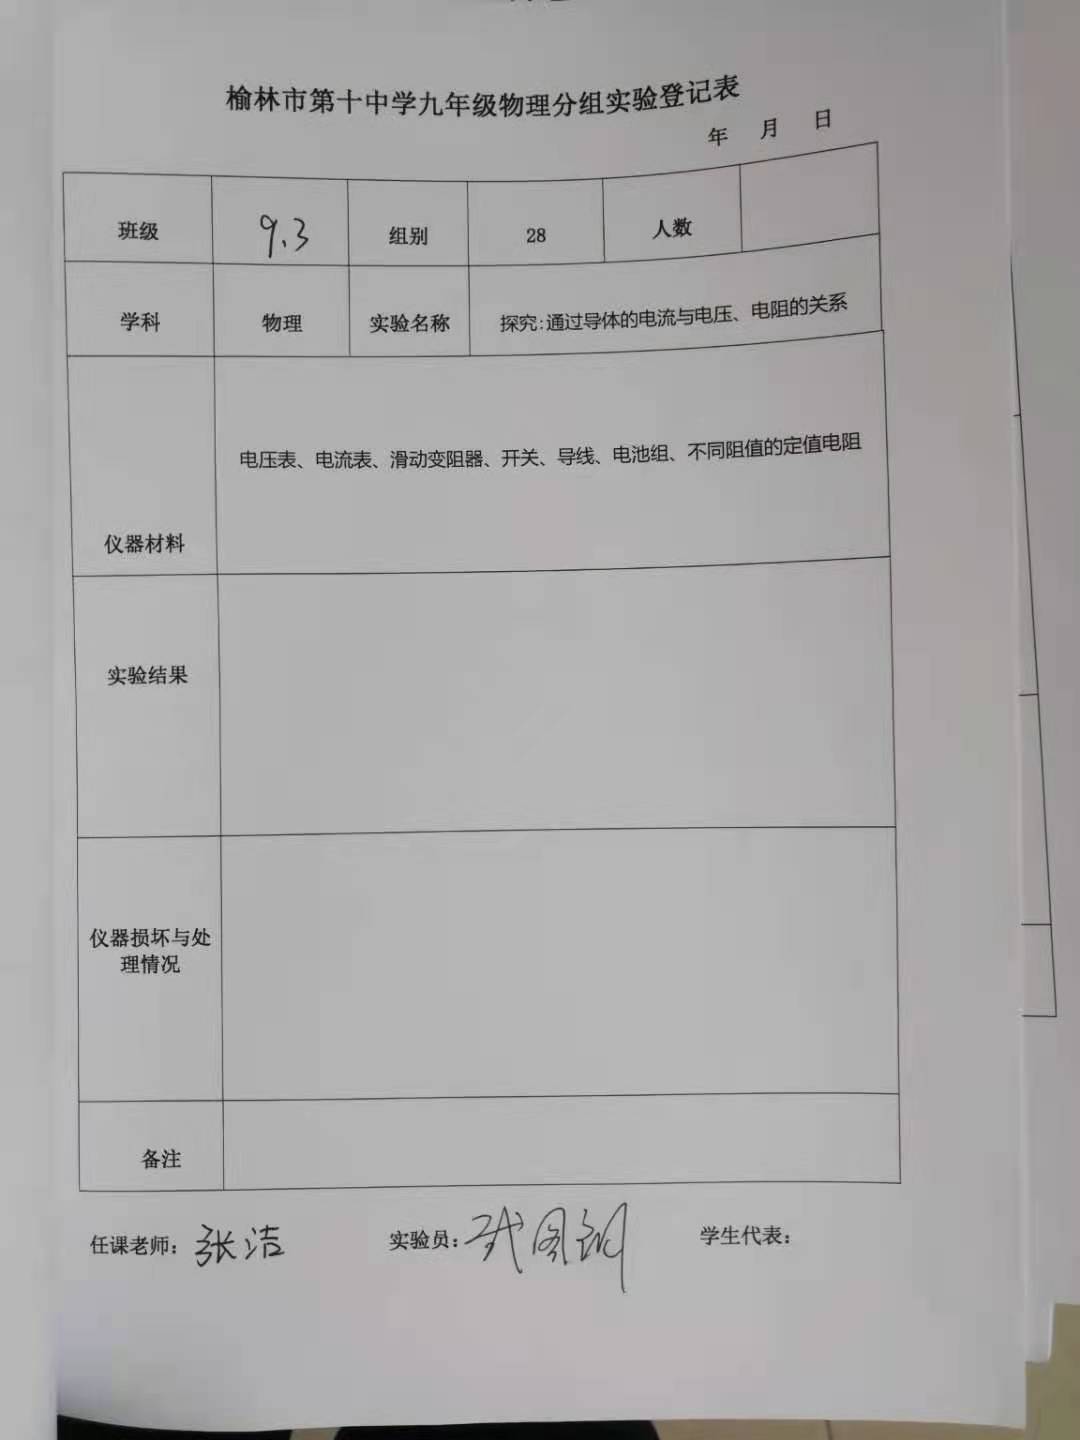 榆林市第十中学九年级物理分组实验登记表
年 月 日
班级 9.3 组别 28 人数
学科 物理 实验名称 探究:通过导体的电流与电压、电阻的关系
仪器材料 电压表、电流表、滑动变阻器、开关、导线、电池组、不同阻值的定值电阻
实验结果
仪器损坏与处
理情况
备注
任课老师: 张洁 实验员: 学生代表: